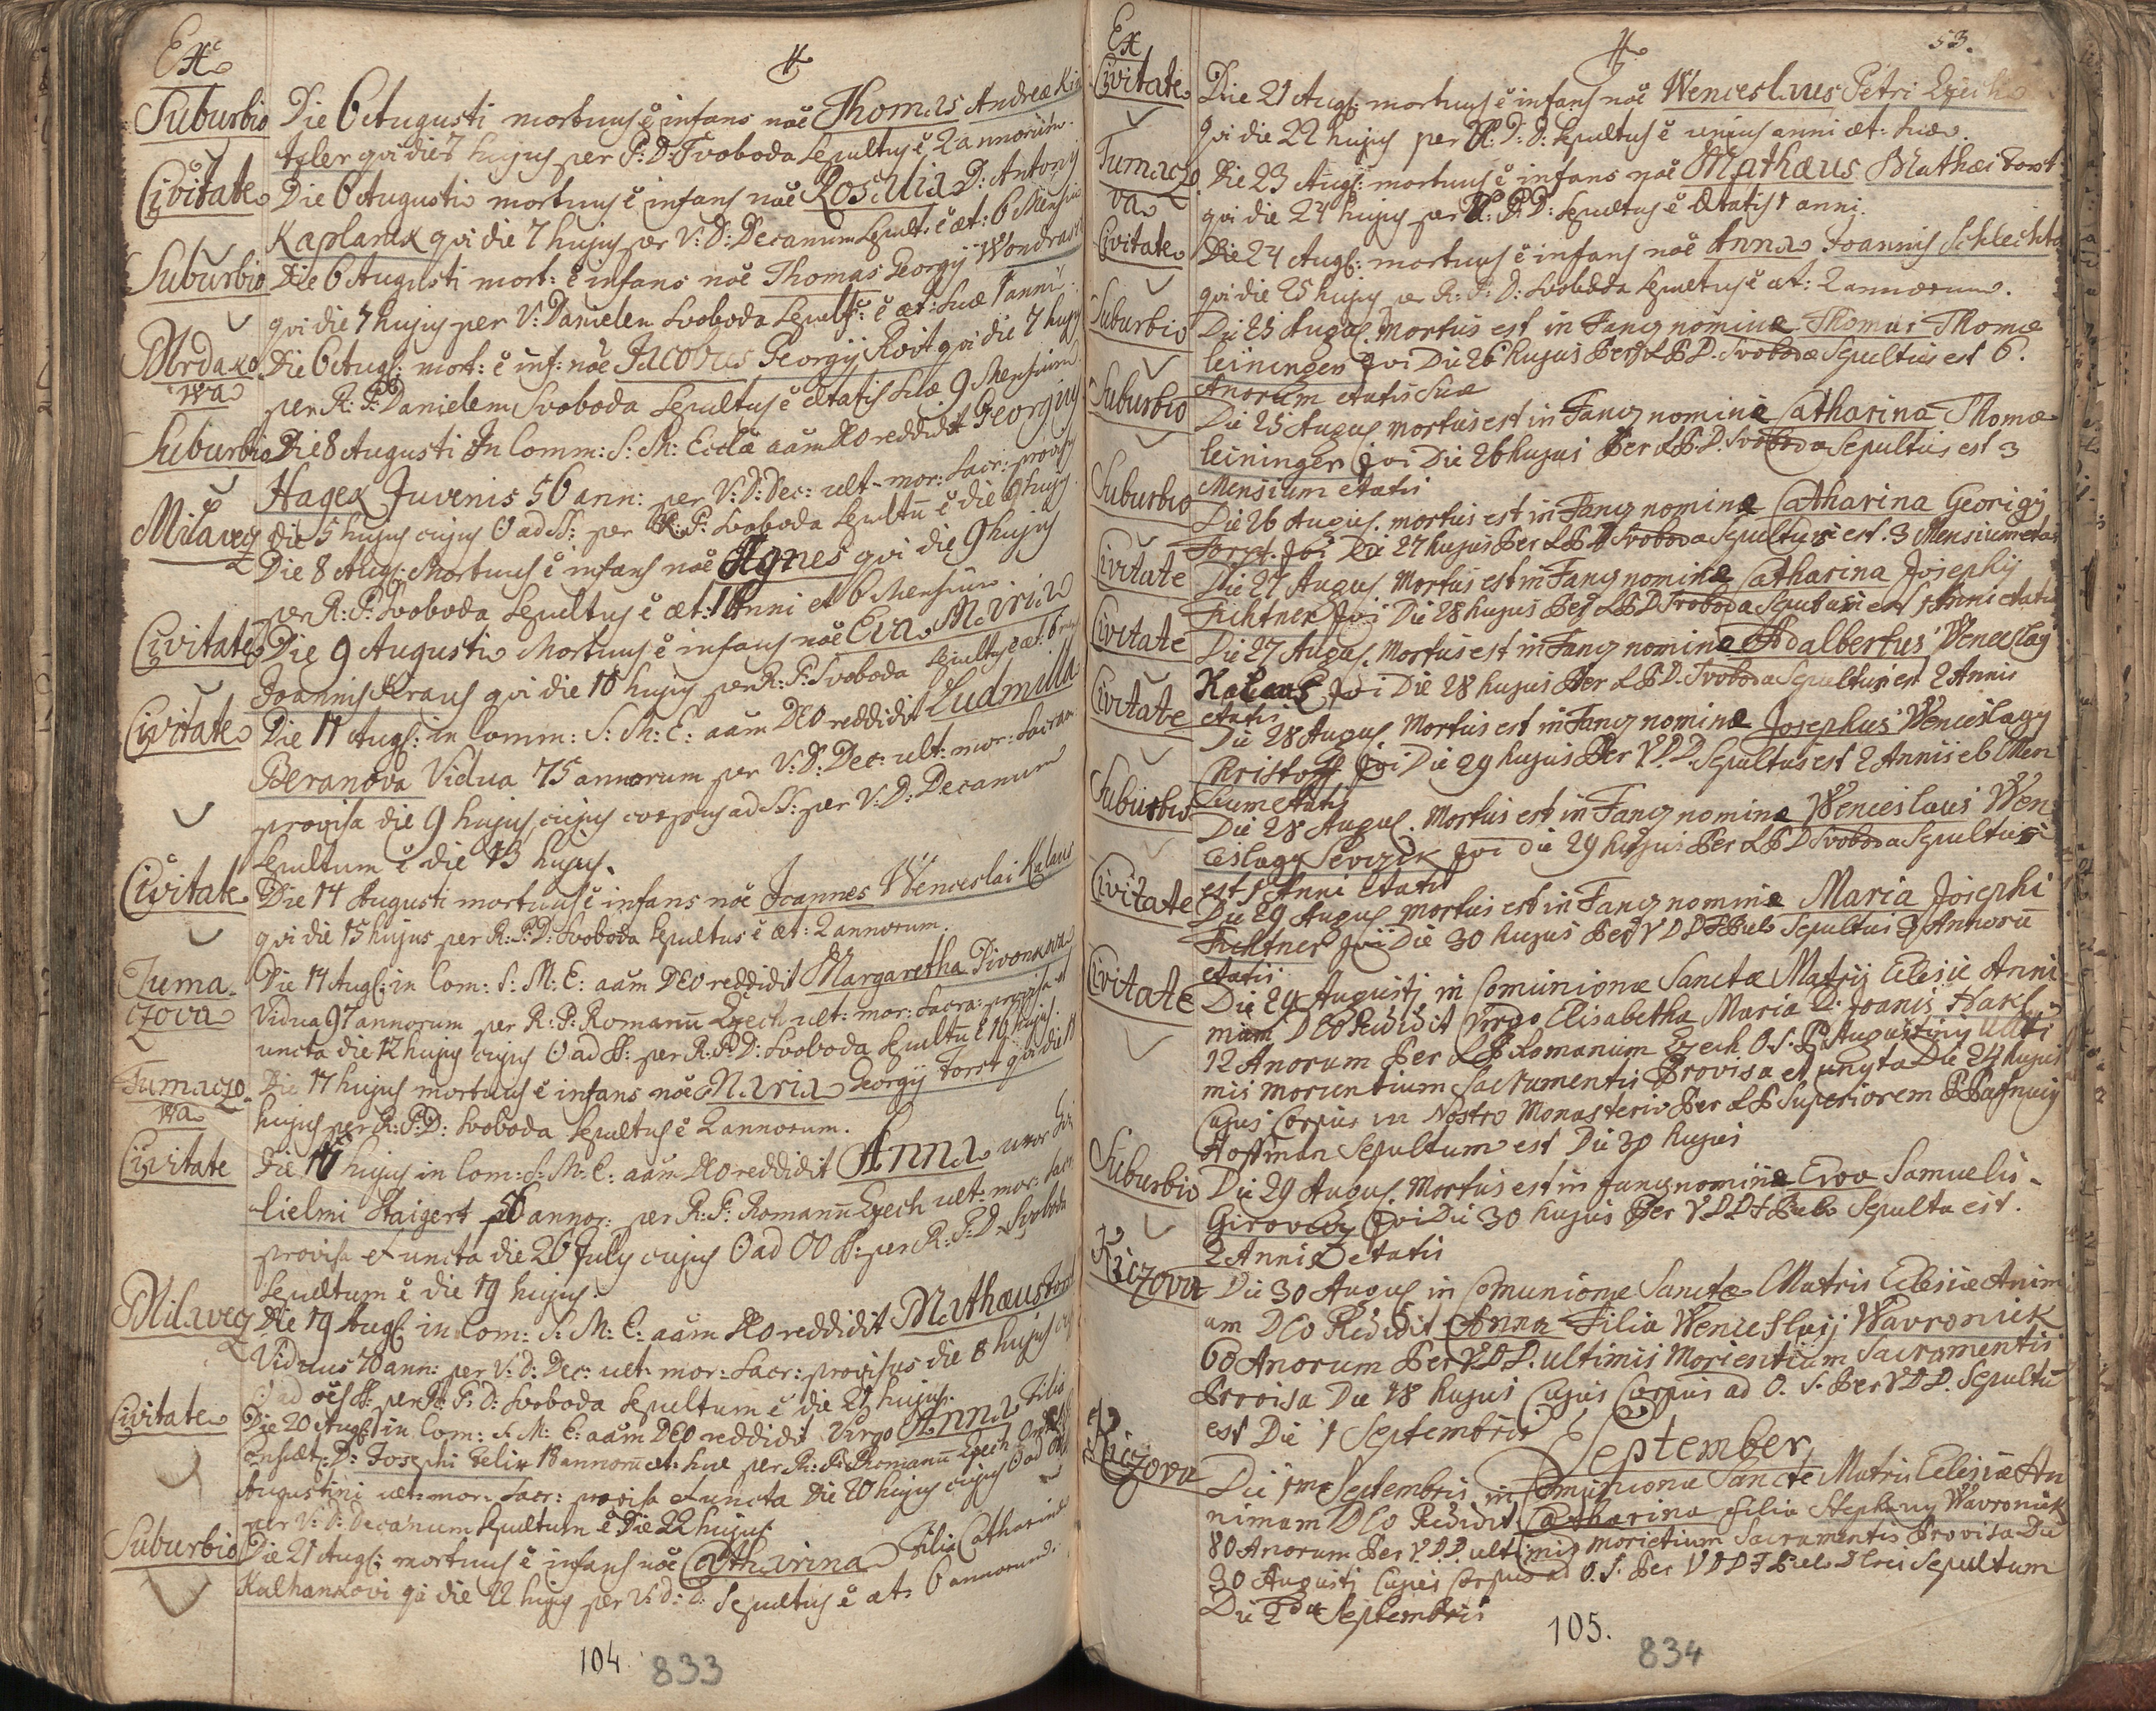 Ex
Suburbio Die 6 Augusti mortuus ē infans noē Thomas Andreæ
qvi die 7 hujus per P: D: Svoboda Sepultus ē 2 annorum.
Civitate Die 6 Augusti mortuus ē infans noē Rosalia D: Antonÿ
Kaplanek qvi die 7 hujus per V: D: Decanum Sepult: ē æt: 6 Mensiu
Suburbio Die 6 Augusti mort: ē infans noē Thomas Georgÿ
qvi die 7 hujus per V: Danielem Svoboda Sepult: ē æt: suæ 1 anni.
Mrdako
wa Die 6 Aug: mort: ē inf: noē Jacobus Georgÿ Roit qvi die 7 hujus
per R: P: Danielem Svoboda Sepultus ē ætatis suæ 9 Mensium
Suburbio Die 8 Augusti In Comm: S: M: Eccla aām DEO reddidit Georgius
Hagek Juvenis 56 ann: per V: D: Dec: ult: mor: Sacr: provis
die 5 hujus cujus O ad SS: per R: P: Svoboda Sepultū ē die 9 hujus
Milavecz Die 8 Aug: Mortuus ē infans noē Agnes qvi die 9 hujus
per R: P: Svoboda Sepultus ē æt: 1 Anni et 6 Mensium.
Civitate Die 9 Augusti Mortuus ē infans noē Eva Maria
Joannis Kraus qvi die 10 hujus per R: P: Svoboda Sepultus ē æt: 6
Civitate Die 11 Aug: in Comm: S: M: E: aām DEO reddidit Ludmilla
Beranova Vidua 75 annorum per V: D: Dec: ult: mor: Sacram
provisa die 9 hujus cujus corpus ad SS: per V: D: Decanum
Sepultum ē die 13 hujus.
Civitate Die 14 Augusti mortuus ē infans noē Joannes Wenceslai Kalaus
qvi die 15 hujus per R: P: D: Svoboda Sepultus ē æt: 2 annorum.
Tuma
czova Die 14 Aug: in Com: S: M: E: aām DEO reddidit Margaretha Pivonkova
Vidua 97 annorum per R: P: Romanū Czech ult: mor: Sacra: provisa et
uncta die 12 hujus cujus O ad SS: per R: P: D: Svoboda Sepultū ē 16 hujus.
Tumaczo
wa Die 17 hujus mortuus ē infans noē Maria Georgÿ Forst qvi die
hujus per R: P: D: Svoboda Sepultus ē 2 annorum.
Civitate Die 17 hujus in Com: S: M: E: aām DEO reddidit Anna uxor
lielmi Staigert annor: per R: P: Romanū Czech ult: mor: Sacr
provisa et uncta die 26 July cujus O ad OO SS: per R: P: D: Svoboda
Sepultum ē die 19 hujus.
Milavecz Die 19 Aug: in Com: S: M: E: aām DEO reddidit Mathaus
Viduus 70 ann: per V: D: Dec: ult: mor: Sacr: provisus die 8 hujus
O ad oēs SS: per R: P: D: Svoboda Sepultum ē die 21 hujus.
Civitate Die 20 Aug: in Com: S: M: E: aām DEO reddidit Virgo Anna Filia
D: Josephi Felix 18 annorū æt: suæ per R: P: Romanū Czech
Augustini ult: mor: Sacr: provisa et uncta Die 20 hujus cujus O ad
per V: D: Decanum Sepultum ē Die 22 hujus
Suburbio Die 21 Aug: mortuus ē infans noē Catharina Filia Catharinæ
Kulhankovi qi die 22 hujus per V: D: D: Sepultus ē æt: 6 annorum.
104 833
53.
Ex
Civitate Die 21 Aug: mortuus ē infans noē Wenceslaus Petri Czech
Qvi die 22 hujus per D: D: Sepultus ē unius anni æt: suæ.
Tumaczo
va Die 23 Aug: mortuus ē infans noē Mathæus Mathæi Forst
qvi die 24 hujus per R: P: D: Sepultus ē Ætatis 1 anni.
Civitate Die 24 Aug: mortuus ē infans noē Anna Joannis Schlechta
qvi die 25 hujus per R: P: D: Svoboda Sepultus ē æt: 2 annorum.
Suburbio Die 25 Augus. Mortus est in Fanz nomine Thomas Thomæ
leiningen Qvi Die 26 hujus Per D. Svoboda Sepultus est 6.
Anorum etatis Suæ
Suburbio Die 25 Augus mortus est in Fanz nomine Catharina Thomæ
leiningen Qvi Die 26 hujus Per D. Svoboda Sepultus est 3
Mensium etatis
Suburbio Die 26 Augus. mortus est in Fanz nomine Catharina Georigÿ
Forst. Qvi Die 27 hujus Per D Svoboda Sepultus est. 3 Mensium etatis
Civitate Die 27 Augus. Mortus est in Fanz nomine Catharina Josephÿ
Fichtner Qvi Die 28 hujus Per D Svoboda Sepultus est 1 Anni etatis
Civitate Die 27 Augus. Mortus est in Fanz nomine Adalbertus Wenceslaÿ
Kalaus Qvi Die 28 hujus Per D. Svoboda Sepultus est 2 Annis
etatis
Civitate Die 28 Augus Mortus est in Fanz nomine Josephus Wenceslagy
Kristoff Qvi Die 29 hujus Per V. D. D. Sepultus est 2 Annis e 6 Men
sium etatis
Suburbio Die 28 Augus. Mortus est in Fanz nomine Wenceslaus Wen
ceslagy Sevczik Qvi Die 29 hujus Per D Svoboda Sepultus
est 1 Anni etatis
Civitate Die 29 Augus mortus est in Fanz nomine Maria Josephi
Fichtner Qvi Die 30 hujus Per V D D Sepultus 3 Annorū
etatis
Civitate Die 29 Augusti in Comunione Sanctæ Matrij Eclesiæ Anni
mam DEO Rididit Virgo Elisabetha Maria D. Joanis
12 Anorum Per Romanum Czech O. S. P. Augustiny Ulti
mis moruntium Sacramentis Provisa et unyta Die 24 hujus
Cujus Corpus in Nostro Monasterio Per Superiorem
Hoffman Sepultum est Die 30 hujus
Suburbio Die 29 Augus. Mortus est in fanz nomine Ewa Samuelis
Qvi Die 30 hujus Per V D D Sepulta est.
2 Annis etatis
Kiczova Die 30 Augus in Comunione Sanctæ Matris Eclesiæ Anim
am DEO Rididit Anna Filia Wenceslaÿ Wavroniek
60 Anorum Per V D D. ultimis Morientium Sacramentis
Provisa Die 28 hujus Cujus Corpus ad O. S. Per V D D. Sepultū
est Die 1 Septembris
September
Kiczova Die 1me Septembris in Comunione Sancte Matris Eclesiæ An
nimam DEO Rididit Catharina filia Stephany Wavroniek
80 Anorum Per V D D. ultimis morietium Sacramentis Provisa Die
30 Augusti Cujus Corpus ad O. S. Per V D D Sepultum
Die 2da Septembris
105.
834